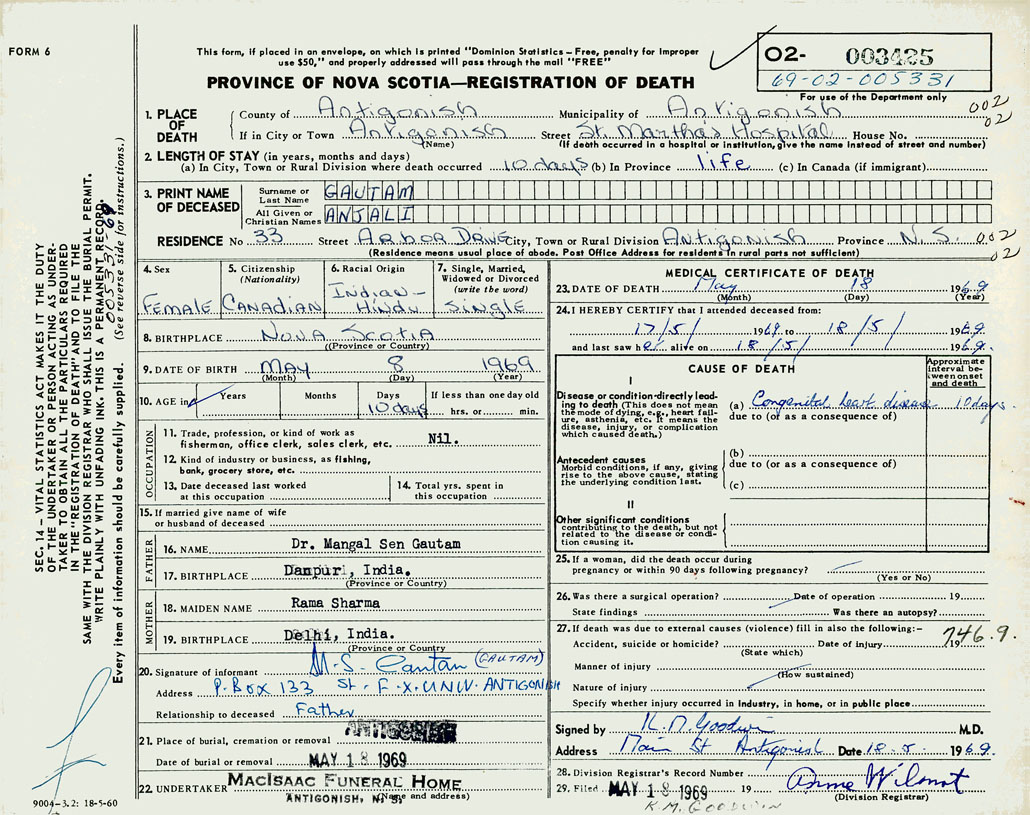 FORM 6
This form, if placed in an envelope, on which is printed "Dominion Statistics – Free, penalty for improper
use $50," and properly addressed will pass through the mail "FREE"
02- 003485
69-02-005331
For use of the Department only
PROVINCE OF NOVA SCOTIA—REGISTRATION OF DEATH
1. PLACE OF DEATH
County of Antigonish Municipality of Antigonish 002
If in City or Town Antigonish Street St. Martha's Hospital House No. 02
(Name) (If death occurred in a hospital or institution, give the name instead of street and number)
2. LENGTH OF STAY (in years, months and days)
(a) In City, Town or Rural Division where death occurred 10 days (b) In Province life (c) In Canada (if immigrant)
3. PRINT NAME OF DECEASED
Surname or Last Name GAUTAM
All Given or Christian Names ANJALI
RESIDENCE No 33 Street Arbor Drive City, Town or Rural Division Antigonish Province N.S. 002
(Residence means usual place of abode. Post Office Address for residents in rural parts not sufficient) 02
4. Sex Female
5. Citizenship (Nationality) Canadian
6. Racial Origin Indian- Hindu
7. Single, Married, Widowed or Divorced (write the word) Single
8. BIRTHPLACE Nova Scotia
(Province or Country)
9. DATE OF BIRTH May 8 1969
(Month) (Day) (Year)
10. AGE in Years Months Days If less than one day old
10 days hrs. or min.
OCCUPATION
11. Trade, profession, or kind of work as
fisherman, office clerk, sales clerk, etc. Nil.
12. Kind of industry or business, as fishing,
bank, grocery store, etc.
13. Date deceased last worked
at this occupation
14. Total yrs. spent in
this occupation
15. If married give name of wife
or husband of deceased
FATHER
16. NAME Dr. Mangal Sen Gautam
17. BIRTHPLACE Danpur, India.
(Province or Country)
MOTHER
18. MAIDEN NAME Rama Sharma
19. BIRTHPLACE Delhi, India.
(Province or Country
20. Signature of informant M.S. Gautam (GAUTAM)
Address P.Box 133 St. F.X. UNIV. ANTIGONISH
Relationship to deceased Father
21. Place of burial, cremation or removal ANTIGONISH
Date of burial or removal MAY 18 1969
22. UNDERTAKER MacIsaac Funeral Home
ANTIGONISH, N.S. (Name and address)
9004–3.2: 18-5-60
MEDICAL CERTIFICATE OF DEATH
23. DATE OF DEATH May 18 1969
(Month) (Day) (Year)
24. I HEREBY CERTIFY that I attended deceased from:
17/5/ 1969 to 18/5/ 1969.
and last saw her alive on 18/5/ 1969.
CAUSE OF DEATH
Approximate interval between onset and death
I
Disease or condition directly leading
to death (This does not mean
the mode of dying, e.g., heart failure,
asthenia, etc. It means the
disease, injury, or complication
which caused death.)
(a) Congenital heart disease 10 days
due to (or as a consequence of)
Antecedent causes
Morbid conditions, if any, giving
rise to the above cause, stating
the underlying condition last.
(b)
due to (or as a consequence of)
(c)
II
Other significant conditions
contributing to the death, but not
related to the disease or condition
causing it.
25. If a woman, did the death occur during
pregnancy or within 90 days following pregnancy?
(Yes or No)
26. Was there a surgical operation? Date of operation 19
State findings Was there an autopsy?
27. If death was due to external causes (violence) fill in also the following:– 746.9.
Accident, suicide or homicide? Date of injury 19
(State which)
Manner of injury
(How sustained)
Nature of injury
Specify whether injury occurred in industry, in home, or in public place
Signed by K.M. Goodwin M.D.
Address Main St Antigonish Date 18.5. 1969.
28. Division Registrar's Record Number
29. Filed MAY 18 1969 19 Anne Wilmot
(Division Registrar)
K.M. GOODWIN
SEC. 14 – VITAL STATISTICS ACT MAKES IT THE DUTY
OF THE UNDERTAKER OR PERSON ACTING AS UNDERTAKER
TO OBTAIN ALL THE PARTICULARS REQUIRED
IN THE "REGISTRATION OF DEATH" AND TO FILE THE
SAME WITH THE DIVISION REGISTRAR WHO SHALL ISSUE THE BURIAL PERMIT.
WRITE PLAINLY WITH UNFADING INK. THIS IS A PERMANENT RECORD.
005331-69
Every item of information should be carefully supplied. (See reverse side for instructions.)